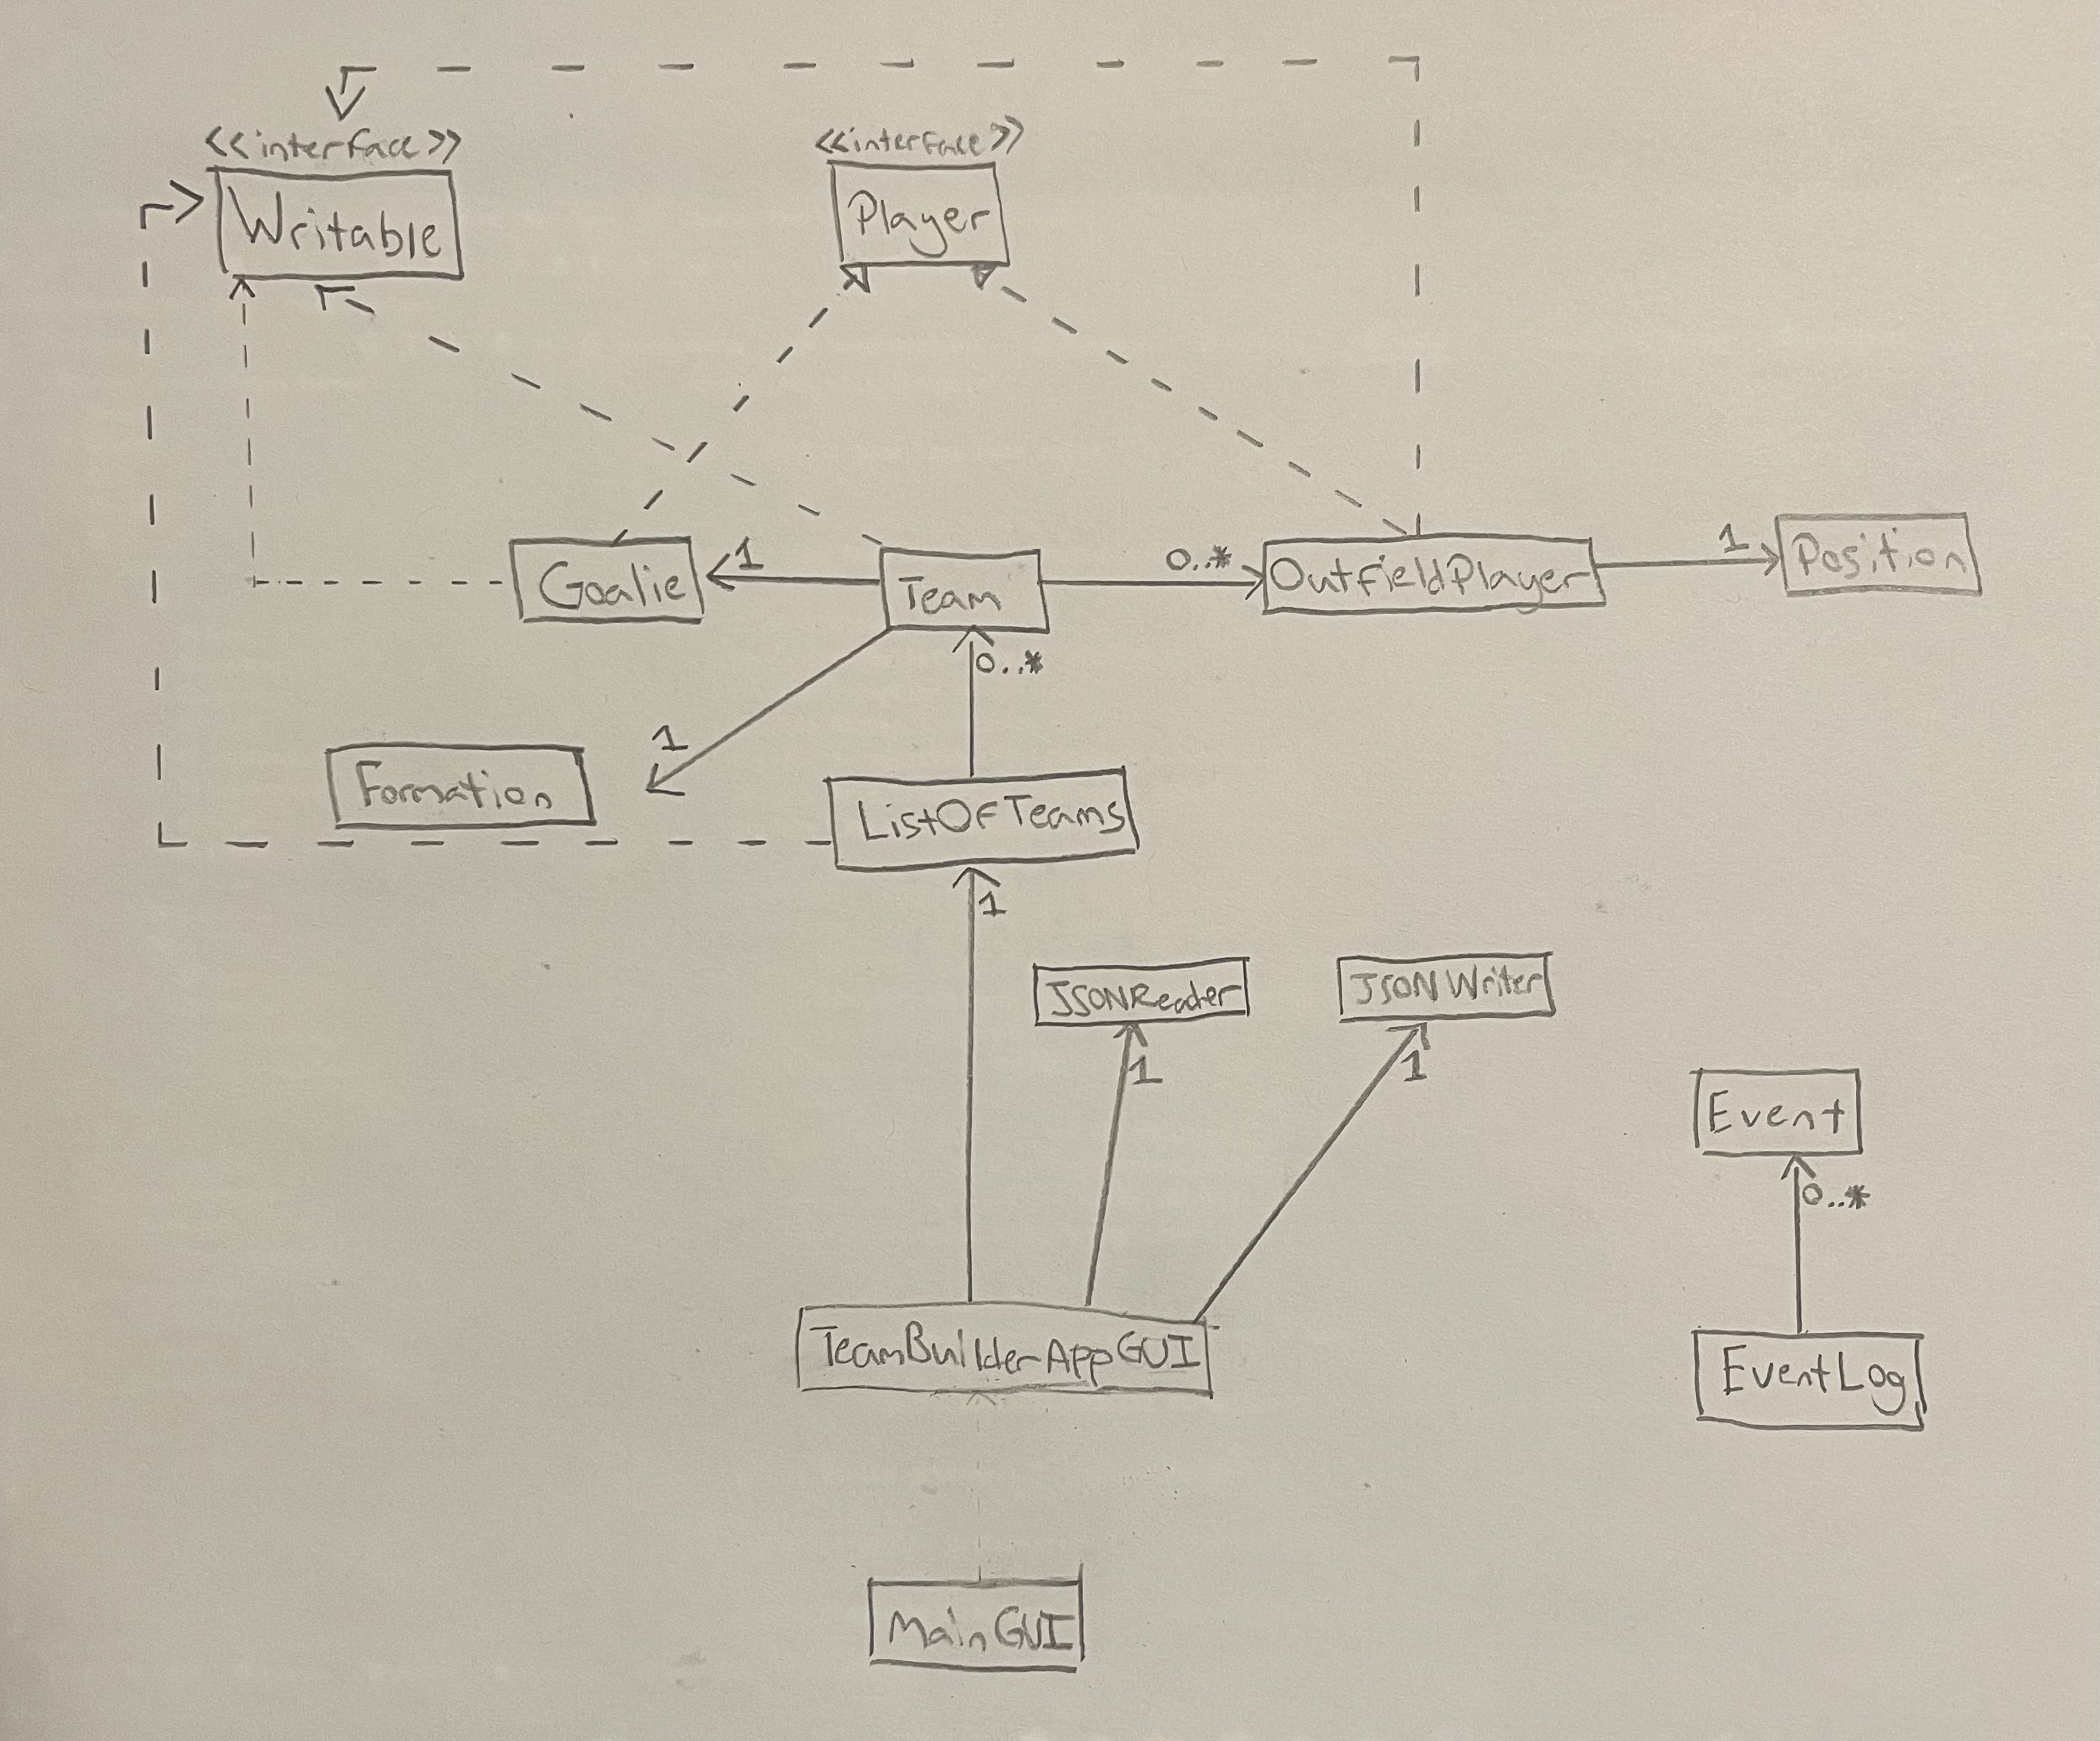 <<interface>>
Writable
<<interface>>
Player
Goalie
1
Team
0..*
OutfieldPlayer
1
Position
0..*
1
Formation
ListOfTeams
1
JSONReader
JSONWriter
1
1
Event
0..*
TeamBuilderAppGUI
EventLog
MainGUI